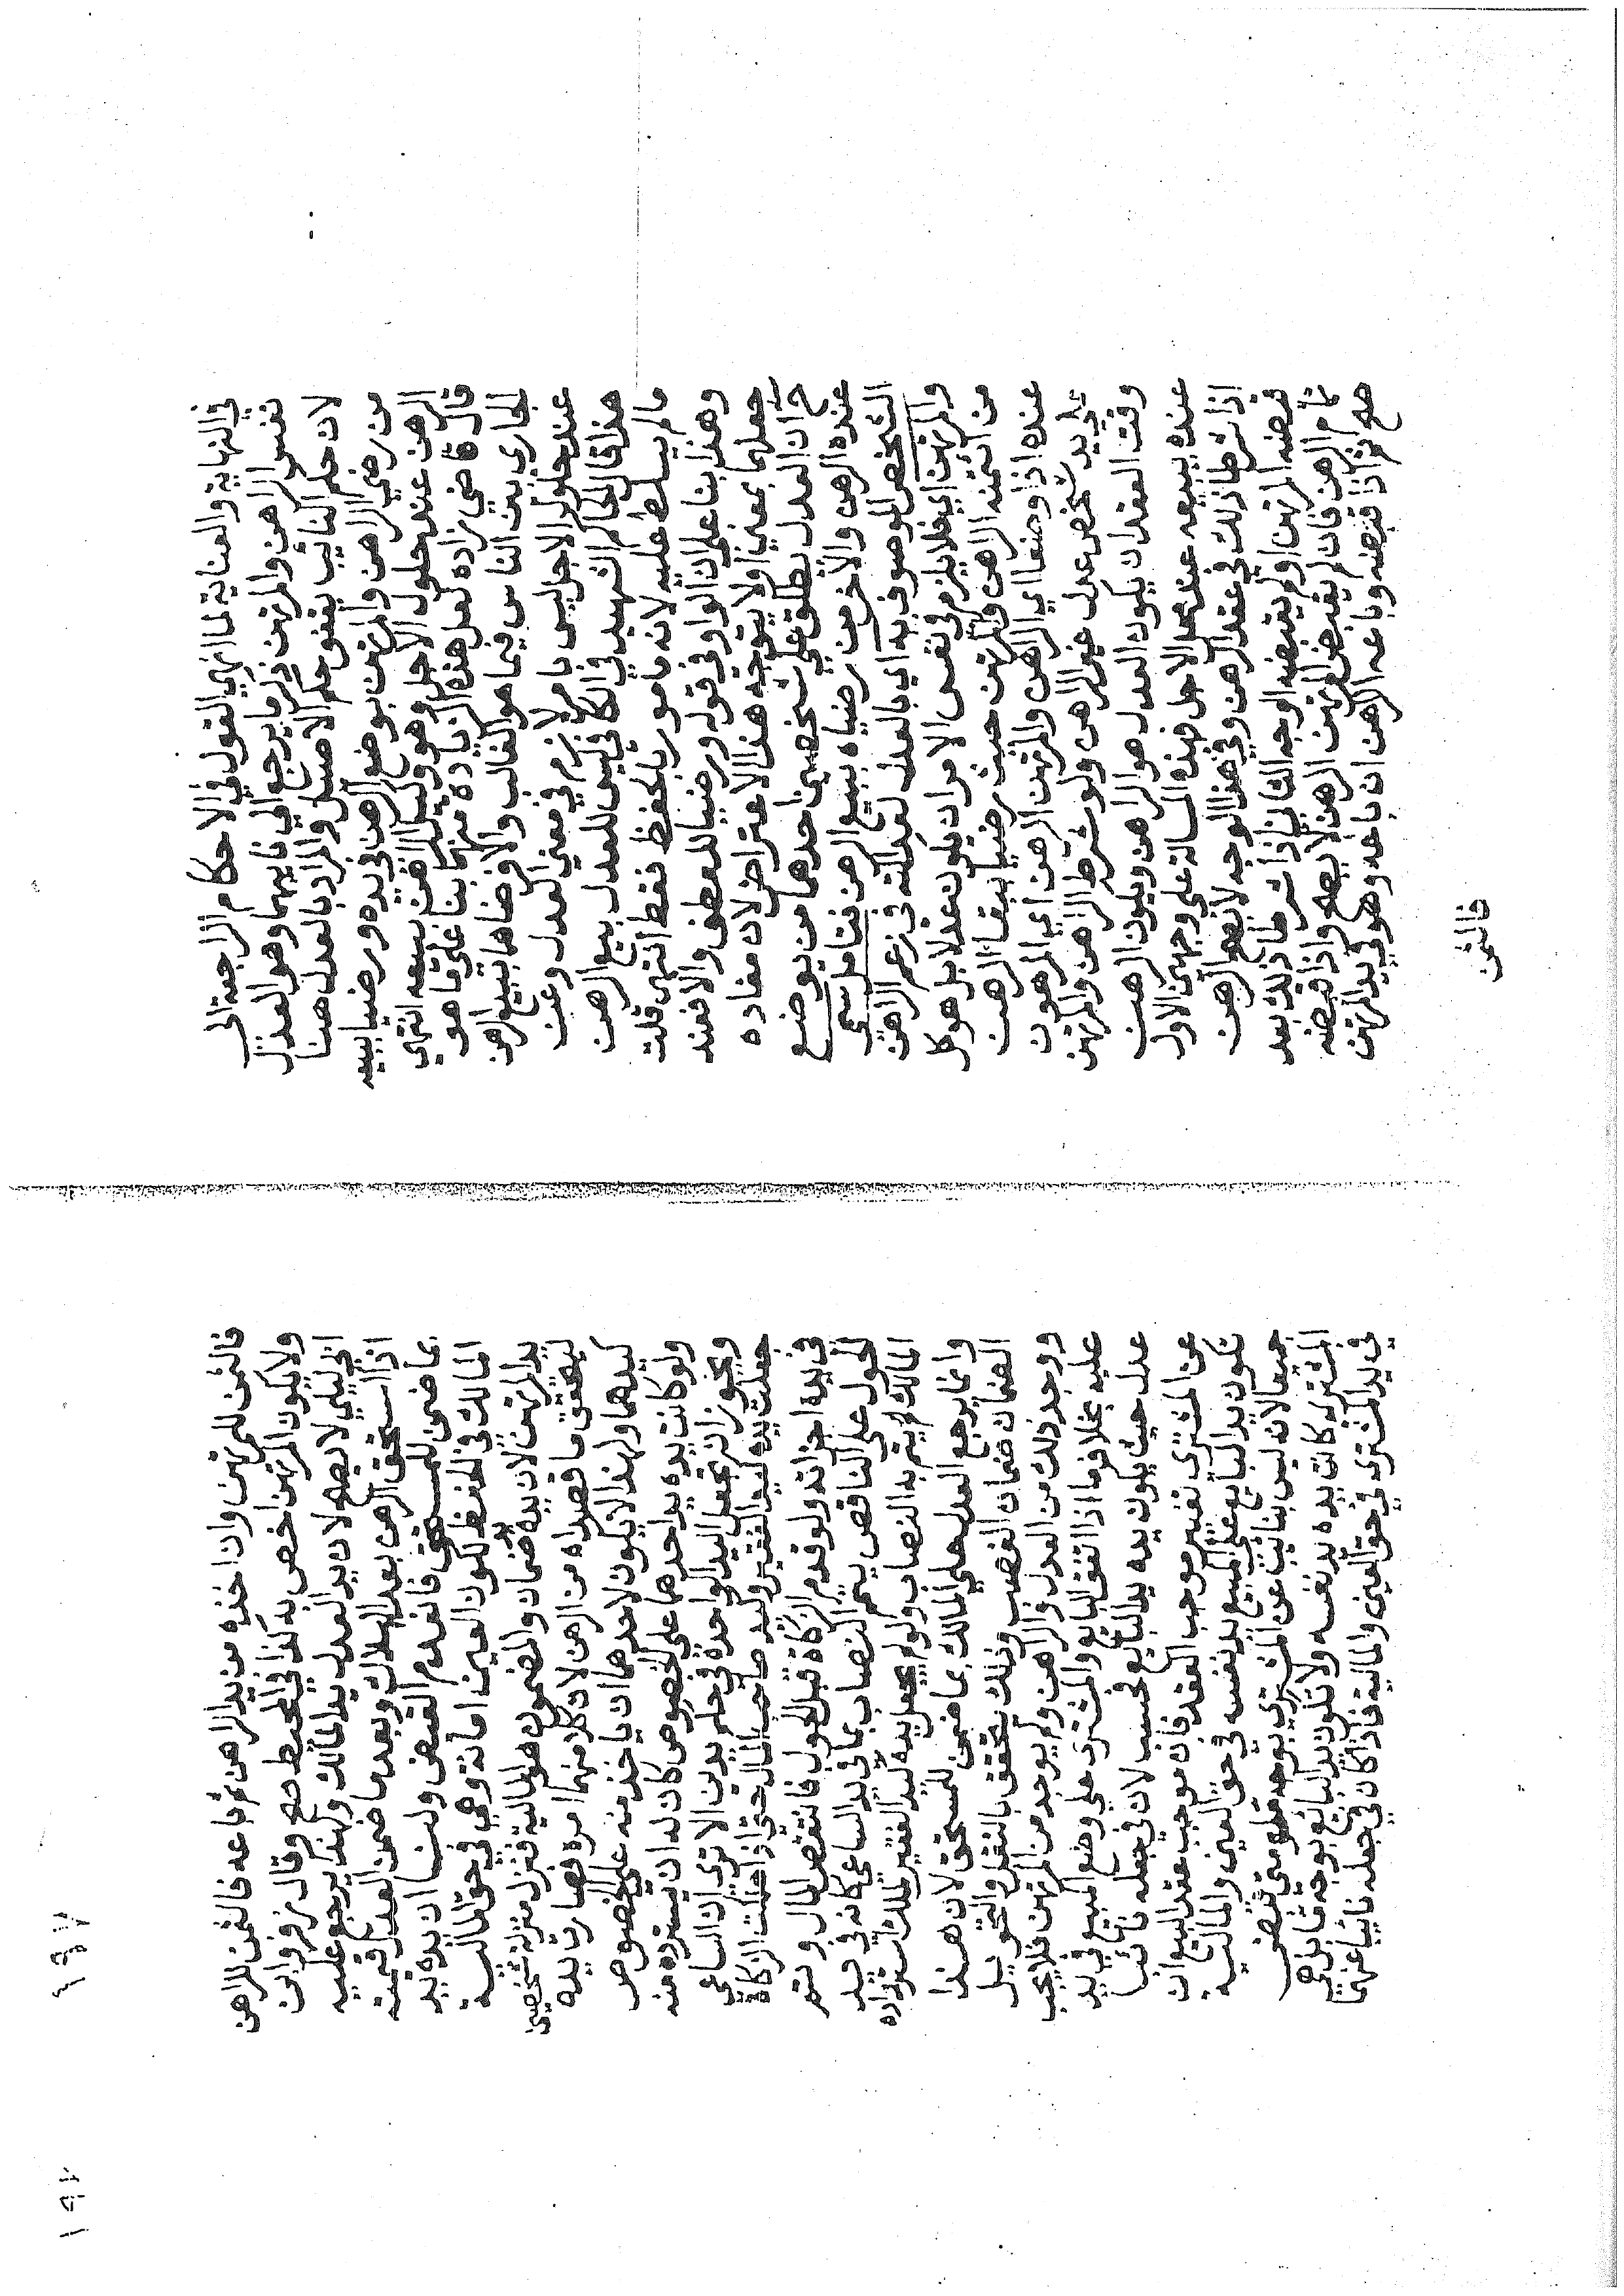 في النهاية والعناية لما انهي القول في الاحكام الراجعة الى
نفس الراهن والمرتهن ذكر ما يرجع الي نايبهما وهو العدل
لان حكم النايب يقفو حكم الاصيل والمراد بالعدل هنا
من رضي الراهن والمرتهن بوضع الرهن في يده ورضيا ببيعه
الرهن عند حلول الاجل وهو وكيل الراهن ببيعه انتهي
قال قاضي زاده لعل هذه الزيادة منهما بنا علي ما هو
الجاري بين الناس فيما هو الغالب والا فرضاهما ببيع الرهن
عند حلول الاجل ليس بامر لازم في معني العدل وعن
هذا قال الحاكم الشهيد في الكافي ليس للعدل بيع الرهن
ما لم يسلط عليه لانه مامور بالحفظ فقط انتهى قلت
وهذا بنا علي ان الواو في قوله ورضيا للعطف والا فعند
جعلها بمعني او لا يتوجه هذا الاعتراض لان مفاده
ح ان العدل يطلق علي شخصين احدهما من يوضع
عنده الرهن والاخر من رضياه ببيع الرهن فتامل سمى
الشخص الموصوف به اي بالعدل لعدالته في زعم الراهن
والمرتهن اي فلا يلزم في نفس الامر ان يكون عدلا بل هو كل
من ائتمنه الراهن والمرتهن حيث رضيا ببقا الرهن
عنده اذا وضعا اي الراهن والمرتهن الرهن اي المرهون
علي يد شخص عدل غير الراهن ولو شرط الراهن والمرتهن
وقت العقد ان يكون العدل هو الراهن ويكون الرهن
عنده ببيعه عند محل الاجل فهذه المسالة علي وجهين الاول
اذا شرطا ذلك في عقد الرهن وفي هذا الوجه لا يصح الرهن
قبضه المرتهن او لم يقبضه الوجه الثاني اذا شرطا ذلك بعد
تمام الرهن فان لم يقبض المرتهن الرهن لا يصح واذا قبضه
صح ثم اذا قبضه وباعه الراهن ان باعه وهو في يد المرتهن
فالثمن
فالثمن للمرتهن وان اخذه من يد الراهن ثم باعه فالثمن للراهن
ولا يكون المرتهن اخص به كذا في المحيط صح وقال زفر وابن
ابي ليلي لا يصح لان يد العدل يد المالك ولهذا يرجع عليه
اذا استحق الرهن بعد الهلاك وبعدما ضمن العدل قيمته
بما ضمن للمستحق فانعدم القبض ولنا ان يده يد
المالك في الحفظ لكون العين امانة وهي في حق المالية
يد المرتهن لان يده يد ضمان والمضمون هو المالية فنزل منزلة شخصين
ليتحقق ما قصداه من الرهن لان كلا منهما امره فصارت يده
كيدهما ولهذا لا يكون لاحدهما ان ياخذ منه علي الخصوص
ولو كانت يده يد احدهما علي الخصوص كان له ان يسترده منه
ويجوز ان تجعل اليد الواحدة في حكم يدين الا ترى ان الساعي
جعلت يده كيد الفقير وكيد صاحب المال حتى اذا هلكت الزكاة
في يده اجزاته ولو قدم الزكاة قبل الحول فانتقص المال وتم
الحول على الناقص يتم النصاب بما في يد الساعي كانه في يد
المالك لم يتم به النصاب ولو لم يجعل يده كيد الفقير لملك استرداده
وانما يرجع العدل على المالك بما ضمن للمستحق لان هذا
الضمان ضمان الغصب وذلك يتحقق بالنقل والتحويل
ووجد ذلك من العدل والراهن ولم يوجد من المرتهن فلا يجب
عليه بخلاف ما اذا اتفق البايع والمشتري علي وضع المبيع في يد
عدل حيث يكون يده يد البايع فحسب لان في جعله نائبا
عن المشتري تغيير موجب العقد فان موجب عقد البيع ان
تكون يد البايع علي المبيع يد نفسه في حق العين والمالية
جميعا لانه ليس بنايب عن المشتري بوجه ما ومتي قبض
المشتري كانت يده يد نفسه ولا تكون يد البايع بوجه ما بل هي
في يد المشتري في حق العين والمالية فاذا كان في جعله نايبا عنهما
١٩٧
١٩٧